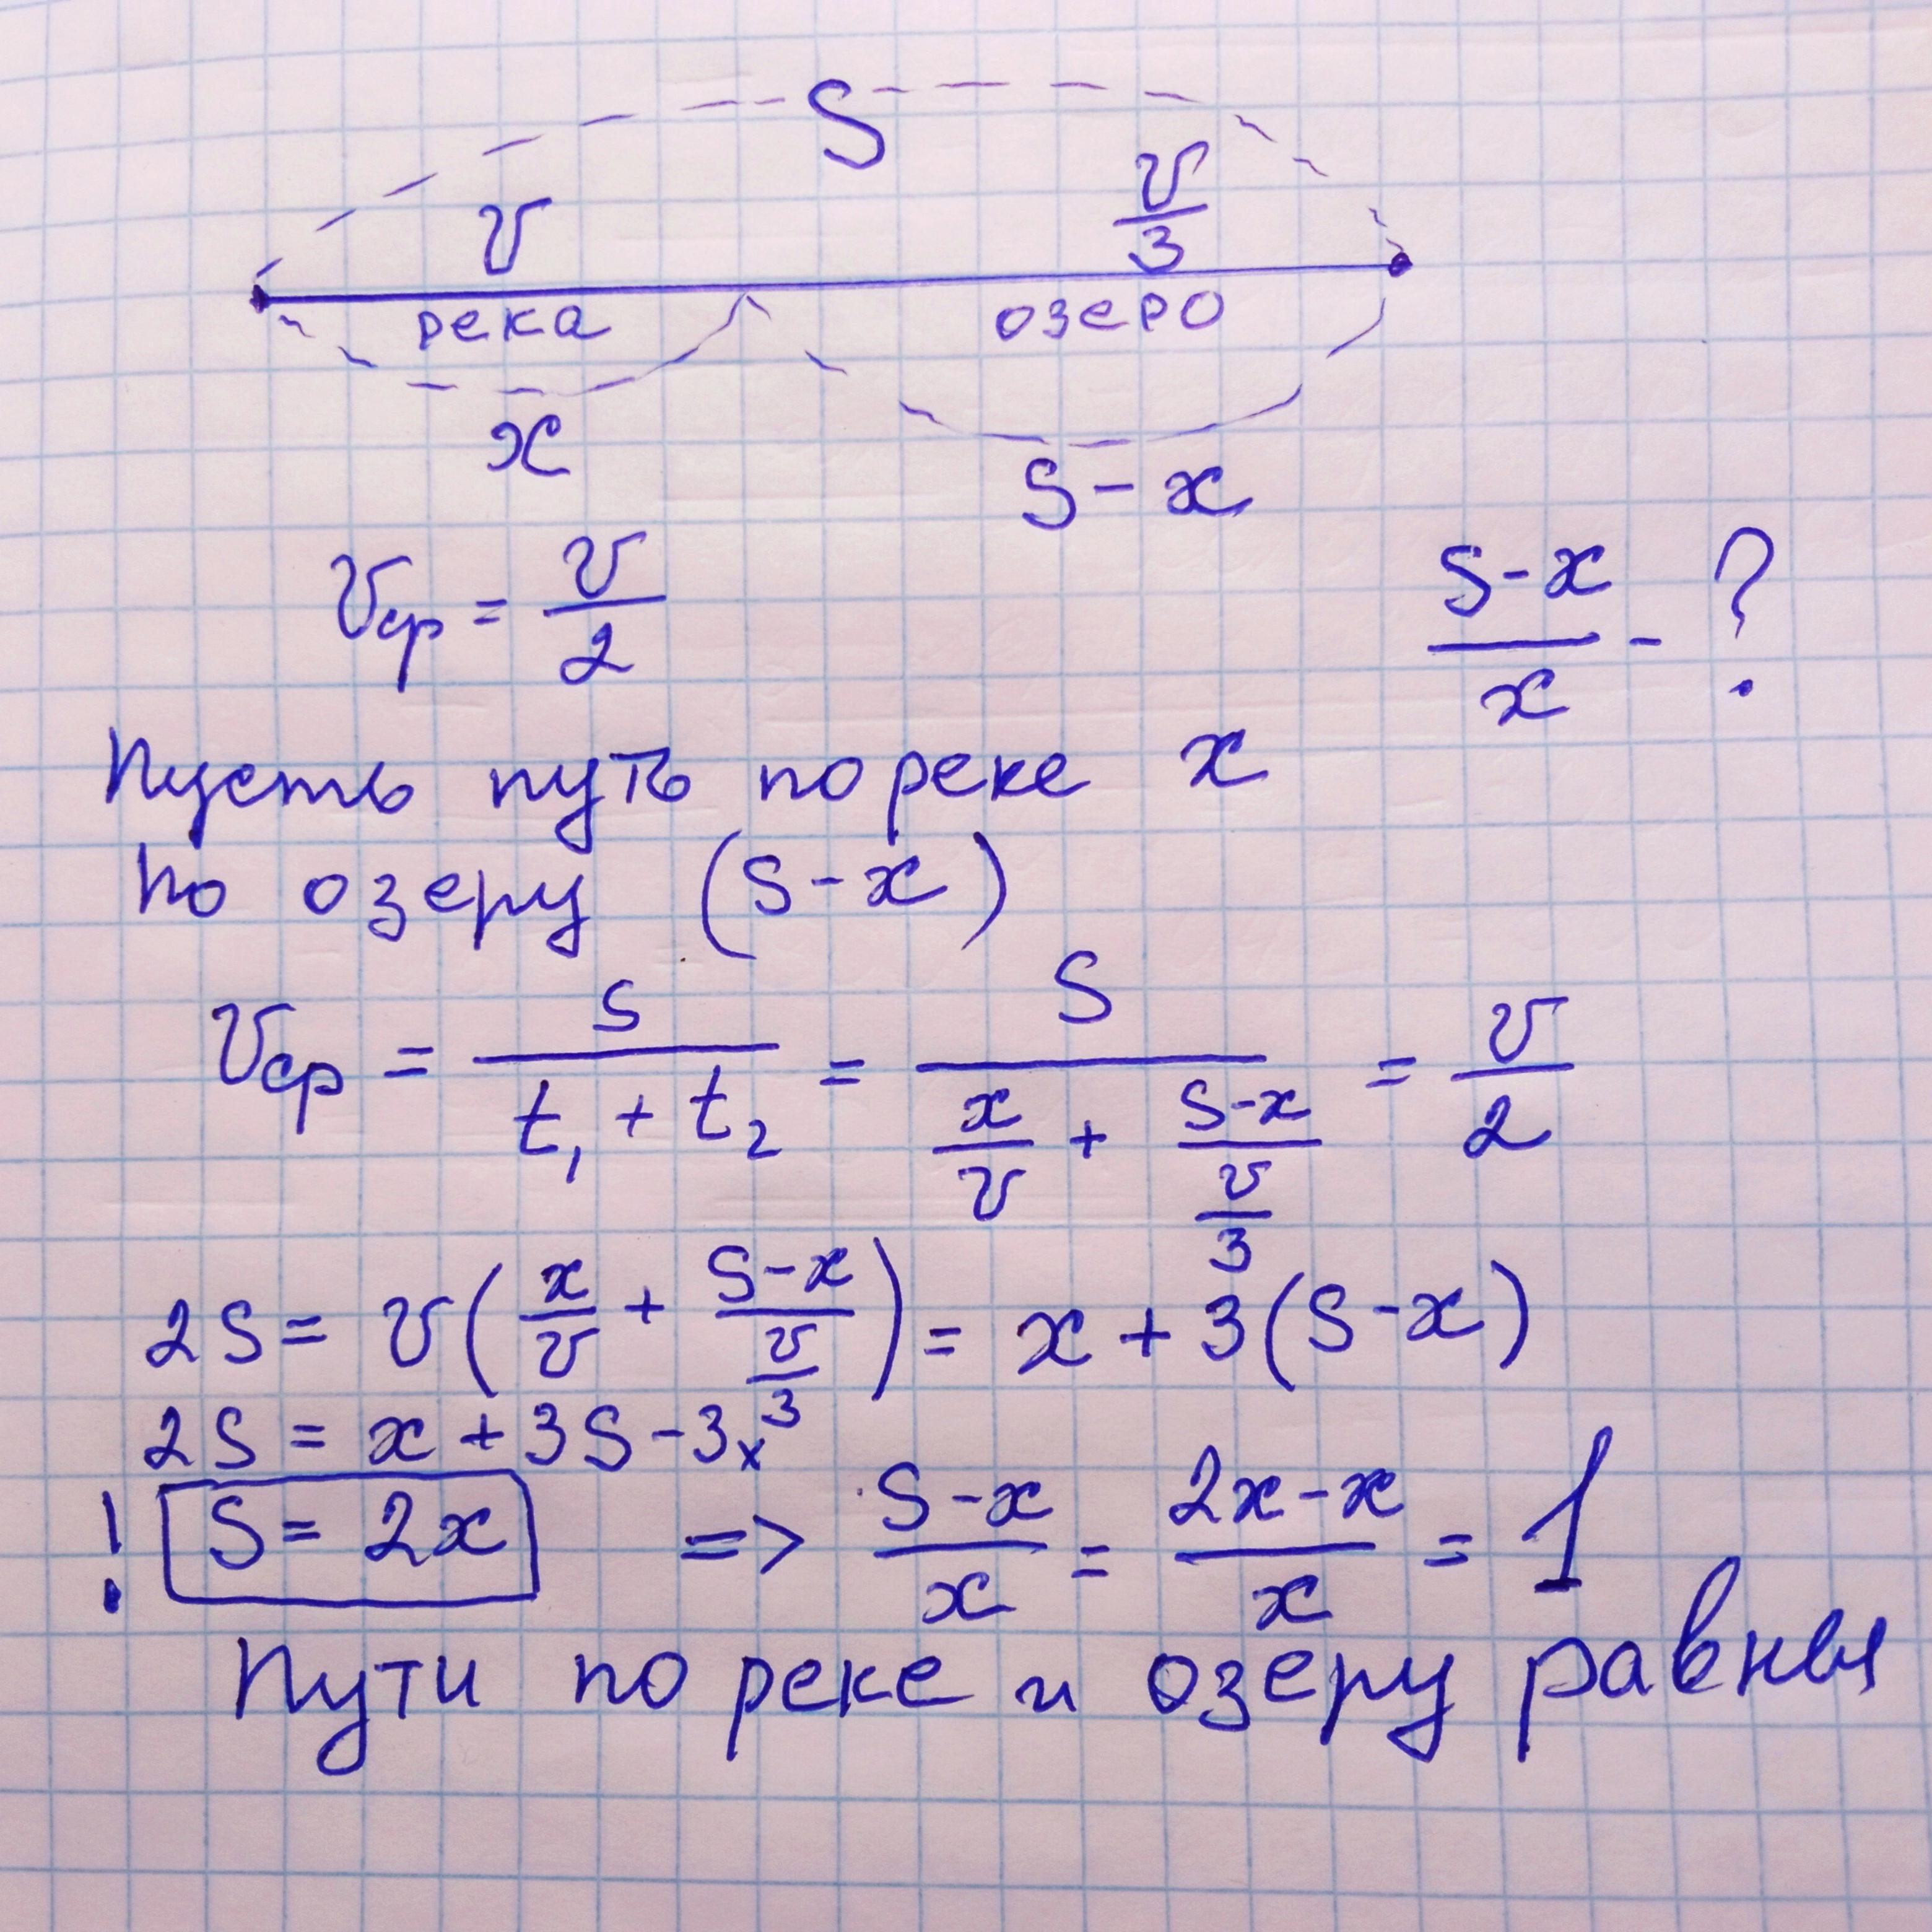 S
v v/3
река озеро
x S-x
v_ср = v/2 (S-x)/x - ?
Пусть путь по реке x
по озеру (S-x)
v_ср = S/(t₁ + t₂) = S/(x/v + (S-x)/(v/3)) = v/2
2S = v(x/v + (S-x)/(v/3)) = x + 3(S-x)
2S = x + 3S - 3x
! S = 2x => (S-x)/x = (2x-x)/x = 1
Пути по реке и озеру равны